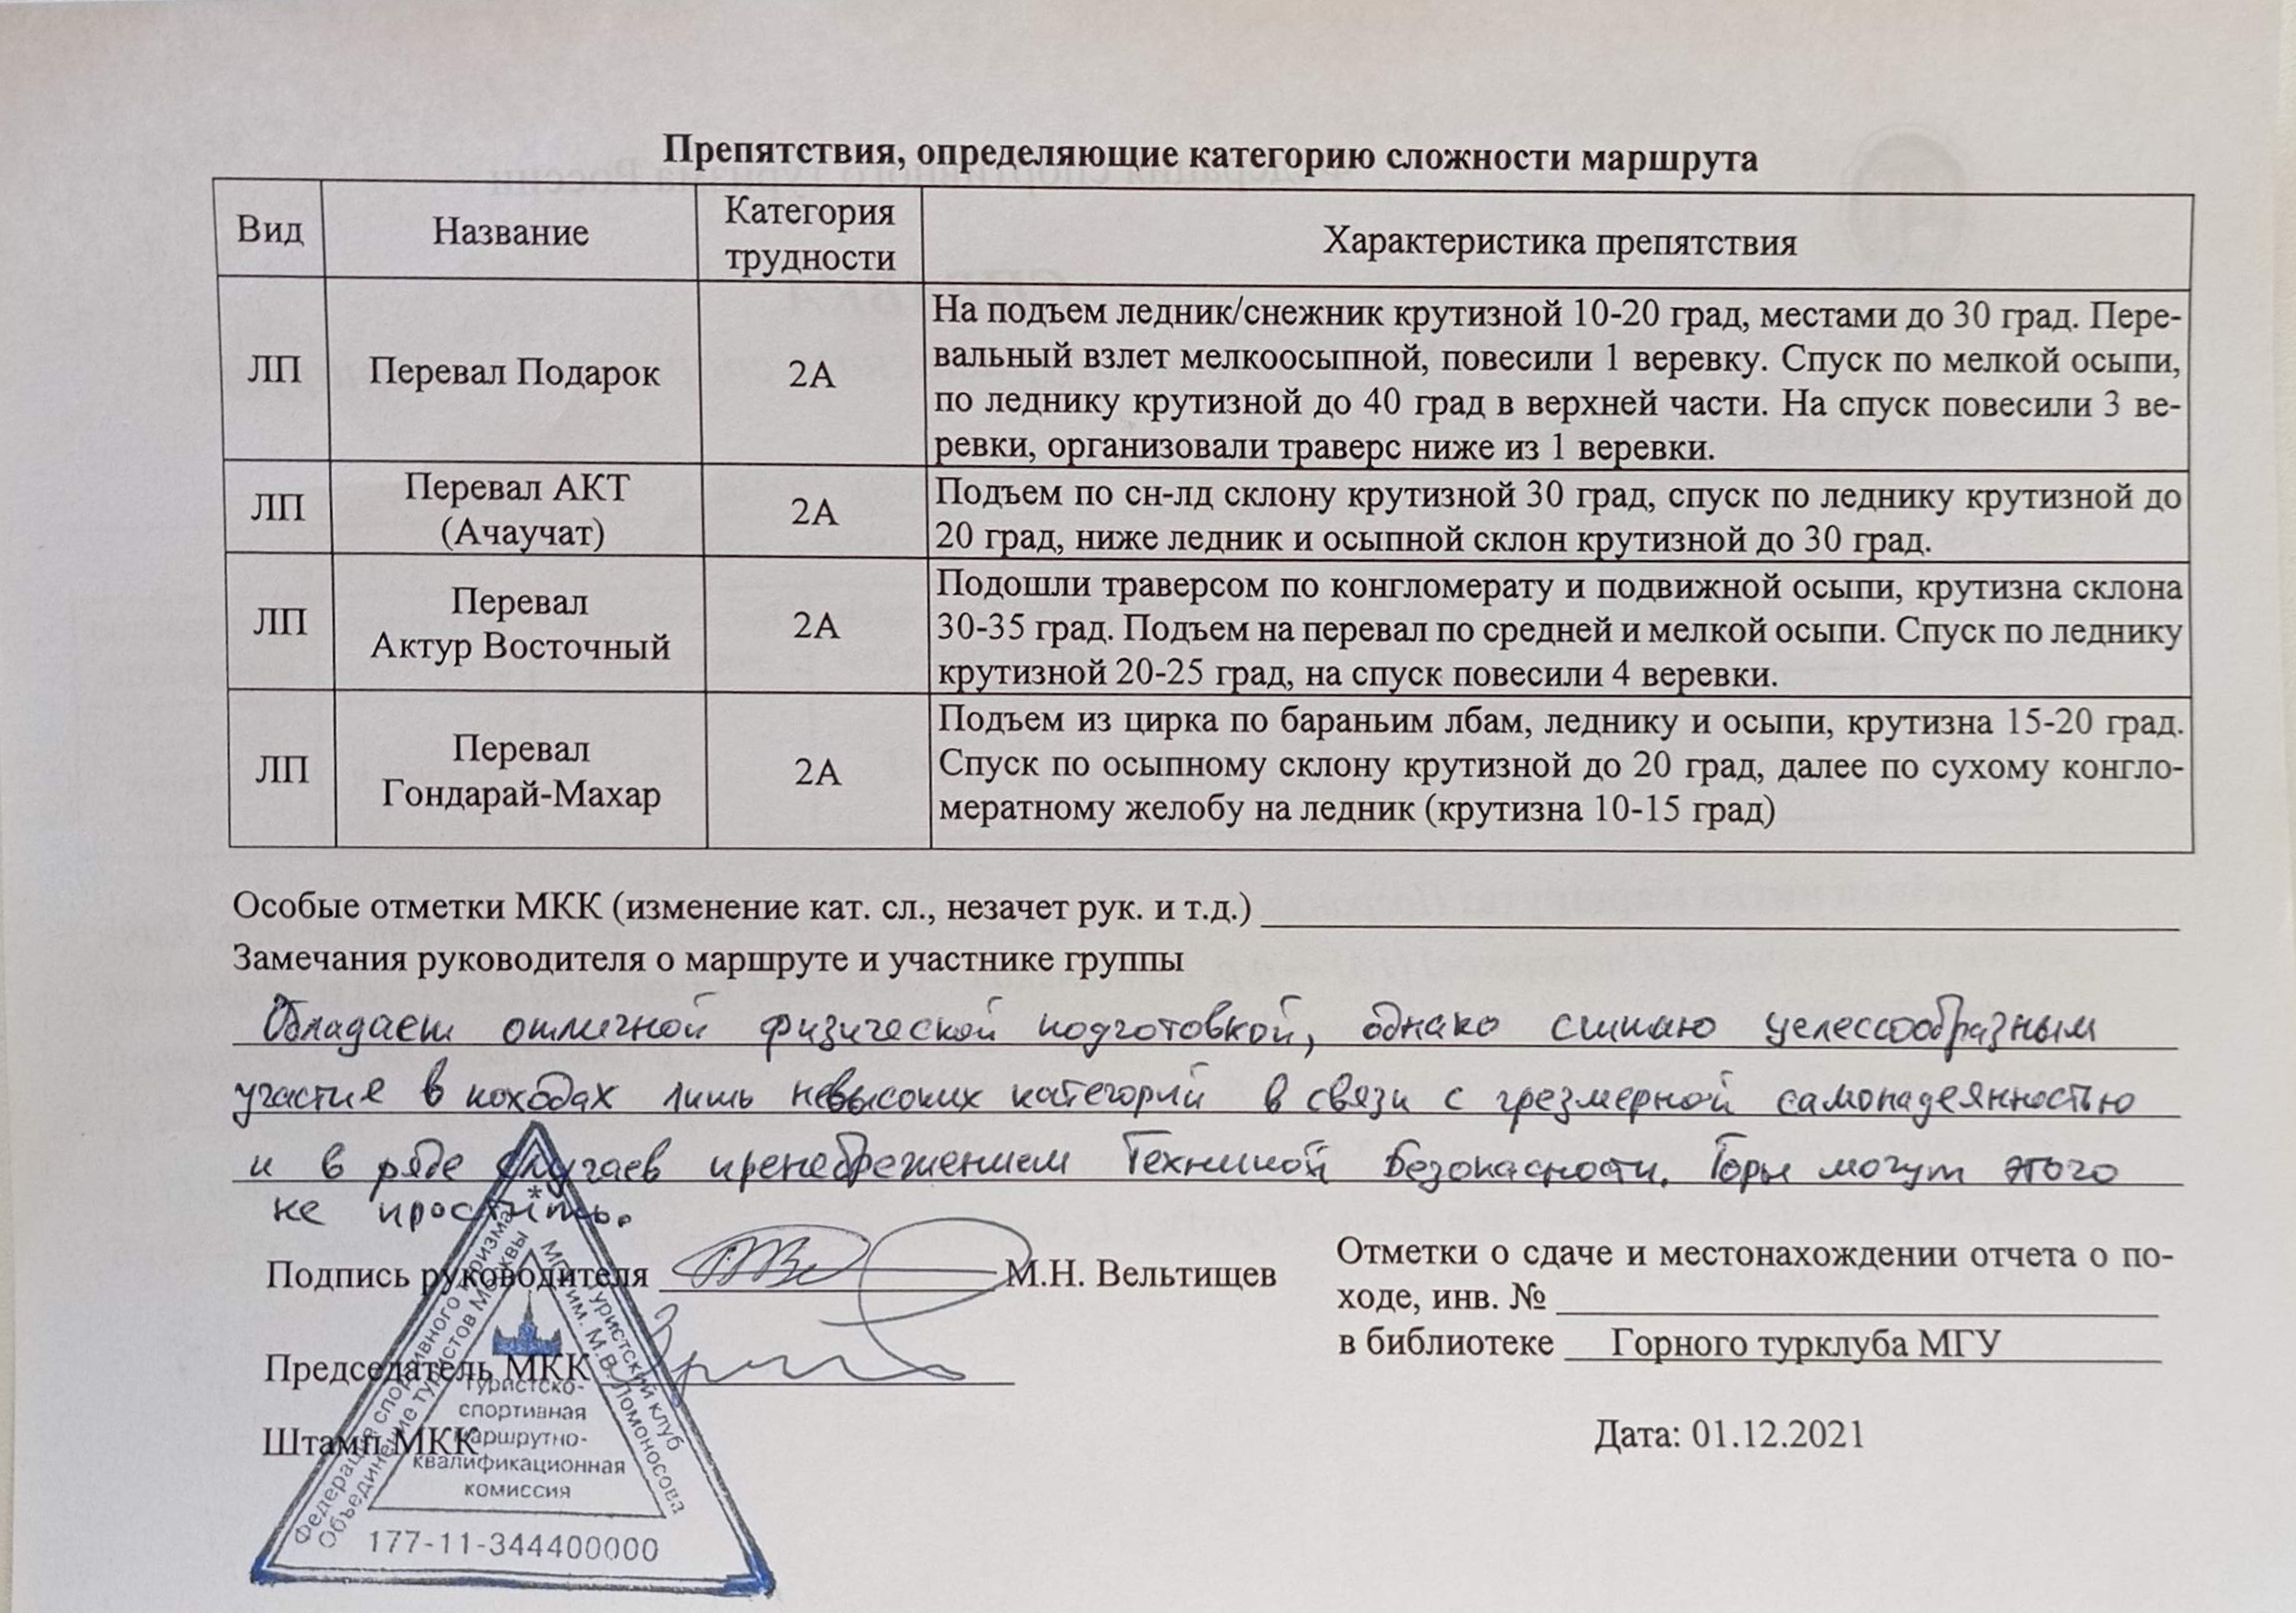 Препятствия, определяющие категорию сложности маршрута
Вид
Название
Категория
трудности
Характеристика препятствия
ЛП
Перевал Подарок
2А
На подъем ледник/снежник крутизной 10-20 град, местами до 30 град. Пере-
вальный взлет мелкоосыпной, повесили 1 веревку. Спуск по мелкой осыпи,
по леднику крутизной до 40 град в верхней части. На спуск повесили 3 ве-
ревки, организовали траверс ниже из 1 веревки.
ЛП
Перевал АКТ
(Ачаучат)
2А
Подъем по сн-лд склону крутизной 30 град, спуск по леднику крутизной до
20 град, ниже ледник и осыпной склон крутизной до 30 град.
ЛП
Перевал
Актур Восточный
2А
Подошли траверсом по конгломерату и подвижной осыпи, крутизна склона
30-35 град. Подъем на перевал по средней и мелкой осыпи. Спуск по леднику
крутизной 20-25 град, на спуск повесили 4 веревки.
ЛП
Перевал
Гондарай-Махар
2А
Подъем из цирка по бараньим лбам, леднику и осыпи, крутизна 15-20 град.
Спуск по осыпному склону крутизной до 20 град, далее по сухому конгло-
мератному желобу на ледник (крутизна 10-15 град)
Особые отметки МКК (изменение кат. сл., незачет рук. и т.д.)
Замечания руководителя о маршруте и участнике группы
Обладает отличной физической подготовкой, однако считаю целессообразным
участие в походах лишь невысоких категорий в связи с чрезмерной самонадеянностью
и в ряде случаев пренебрежением Техникой Безопасности. Горы могут этого
не простить.
Подпись руководителя М.Н. Вельтищев
Председатель МКК
Штамп МКК
Отметки о сдаче и местонахождении отчета о по-
ходе, инв. №
в библиотеке Горного турклуба МГУ
Дата: 01.12.2021
Федерация спортивного туризма *
Объединение туристов Москвы
Туристский клуб
МГУ им. М.В. Ломоносова
Туристско-
спортивная
маршрутно-
квалификационная
комиссия
177-11-344400000